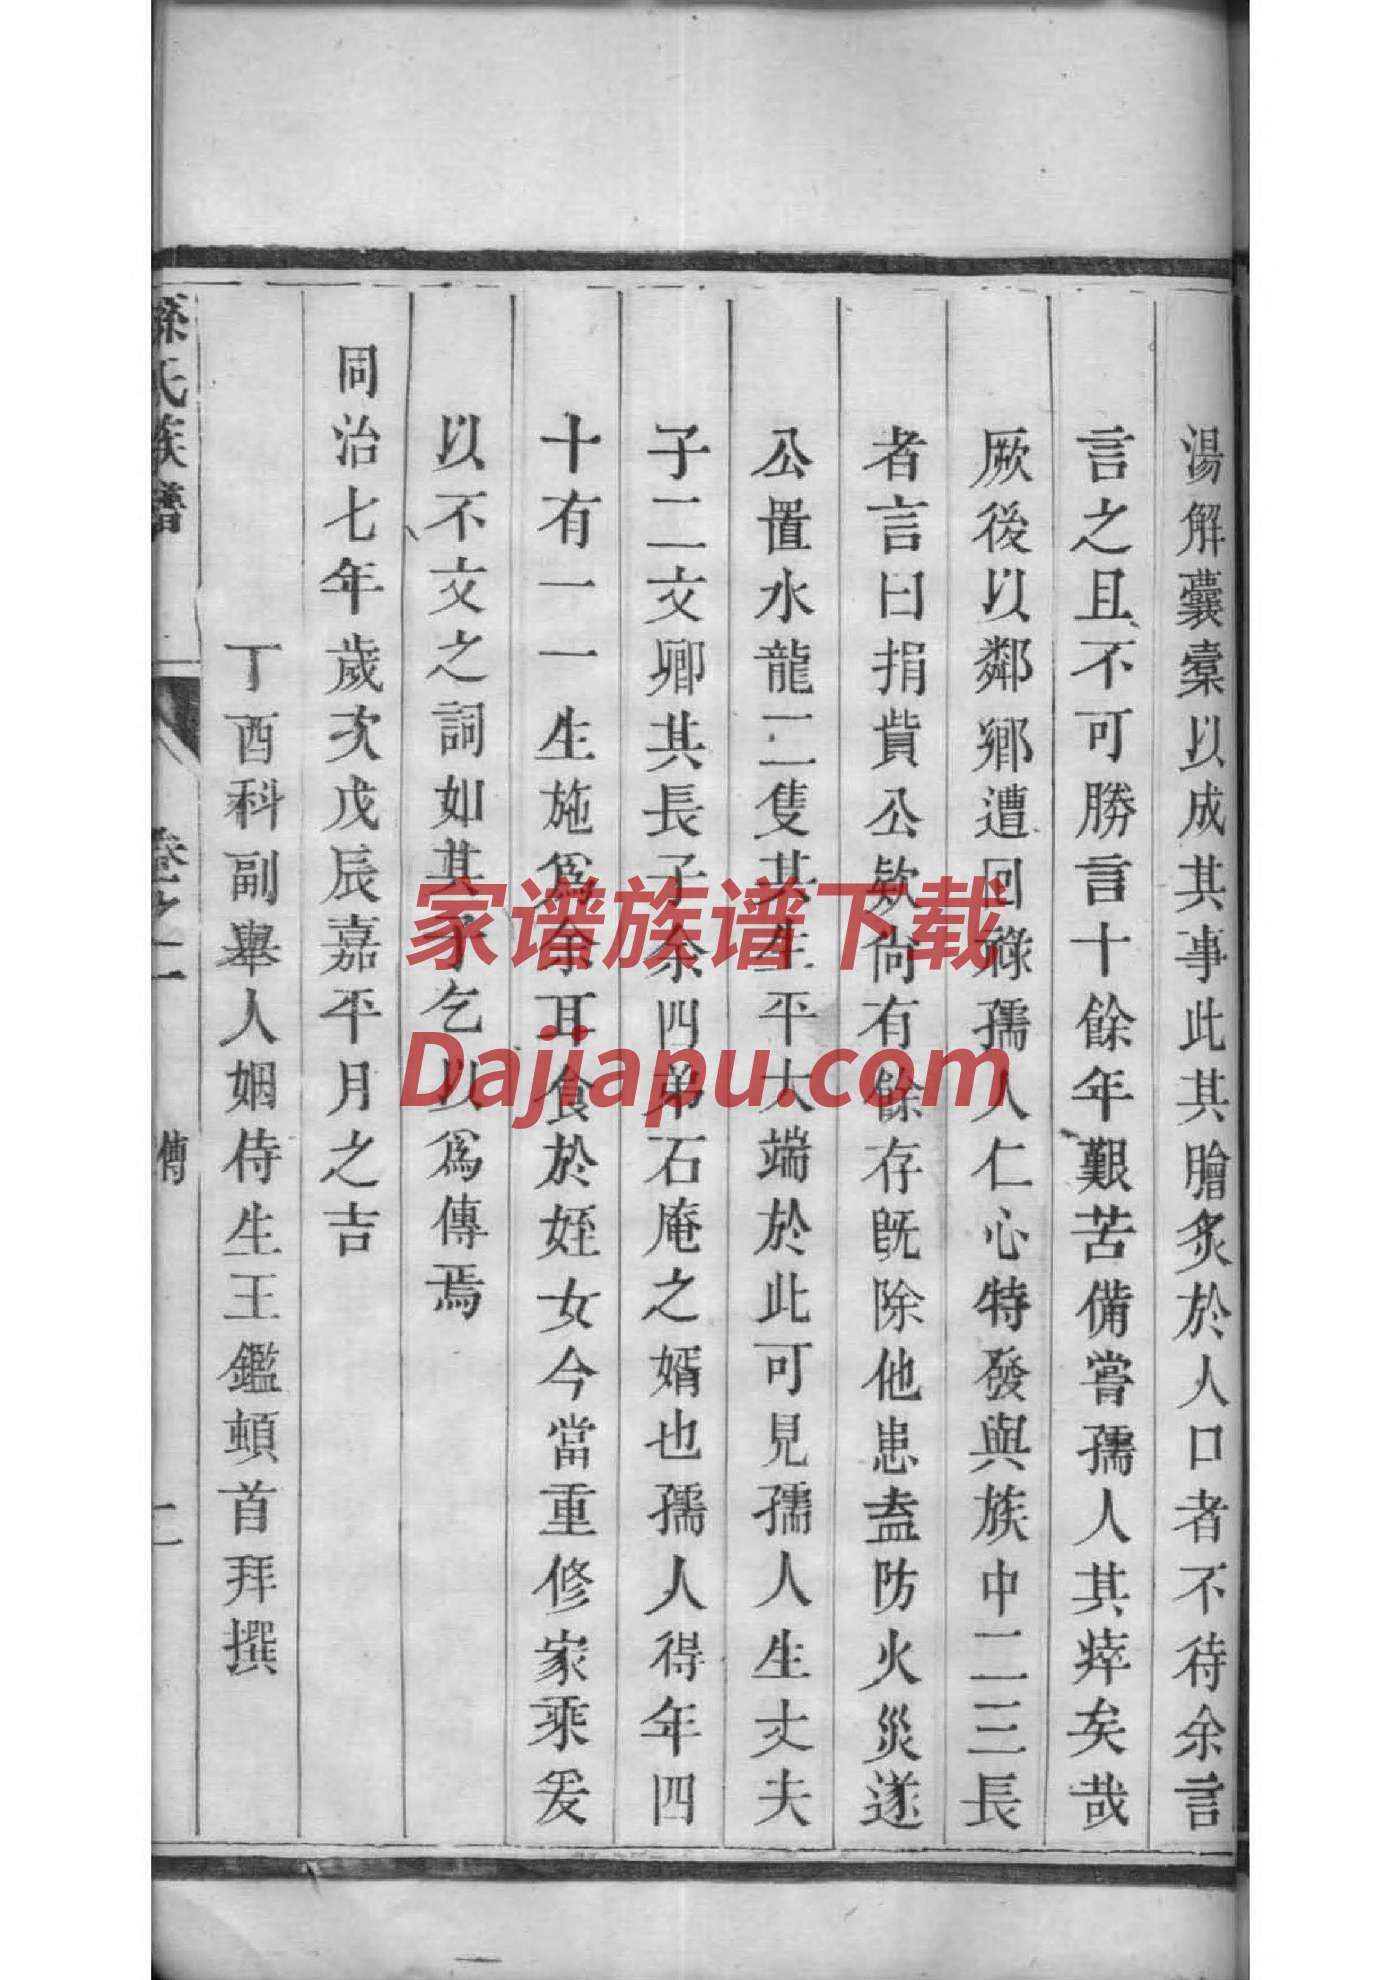 湯解囊橐以成其事此其膾炙於人口者不待余言
言之且不可勝言十餘年艱苦備嘗孺人其瘁矣哉
厥後以鄰鄉遭回祿孺人仁心特發與族中二三長
者言曰捐貲公欵尙有餘存旣除他患盍防火災遂
公置水龍二隻其生平大端於此可見孺人生丈夫
子二文卿其長子余四弟石庵之婿也孺人得年四
十有一一生施爲余耳食於姪女今當重修家乘爰
以不文之詞如其子乞以爲傳焉
同治七年歲次戊辰嘉平月之吉
丁酉科副舉人姻侍生王鑑頓首拜撰
孫氏族譜
卷之一
傳
二
家谱族谱下载
Dajiapu.com